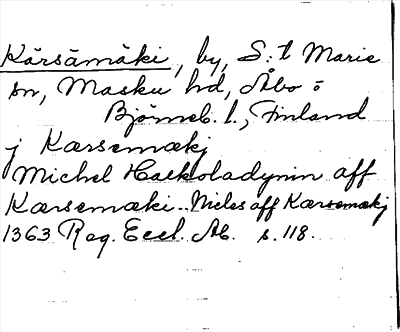 Kärsämäki, by, S:t Marie
sn, Masku hd, Åbo o
Björneb. l., Finland
j Kærsemækj
Michel Haekoladynin aff
Kærsemæki.. Niclesaff Kærsemækj
1363 Reg. Eccl. Ab. s. 118.